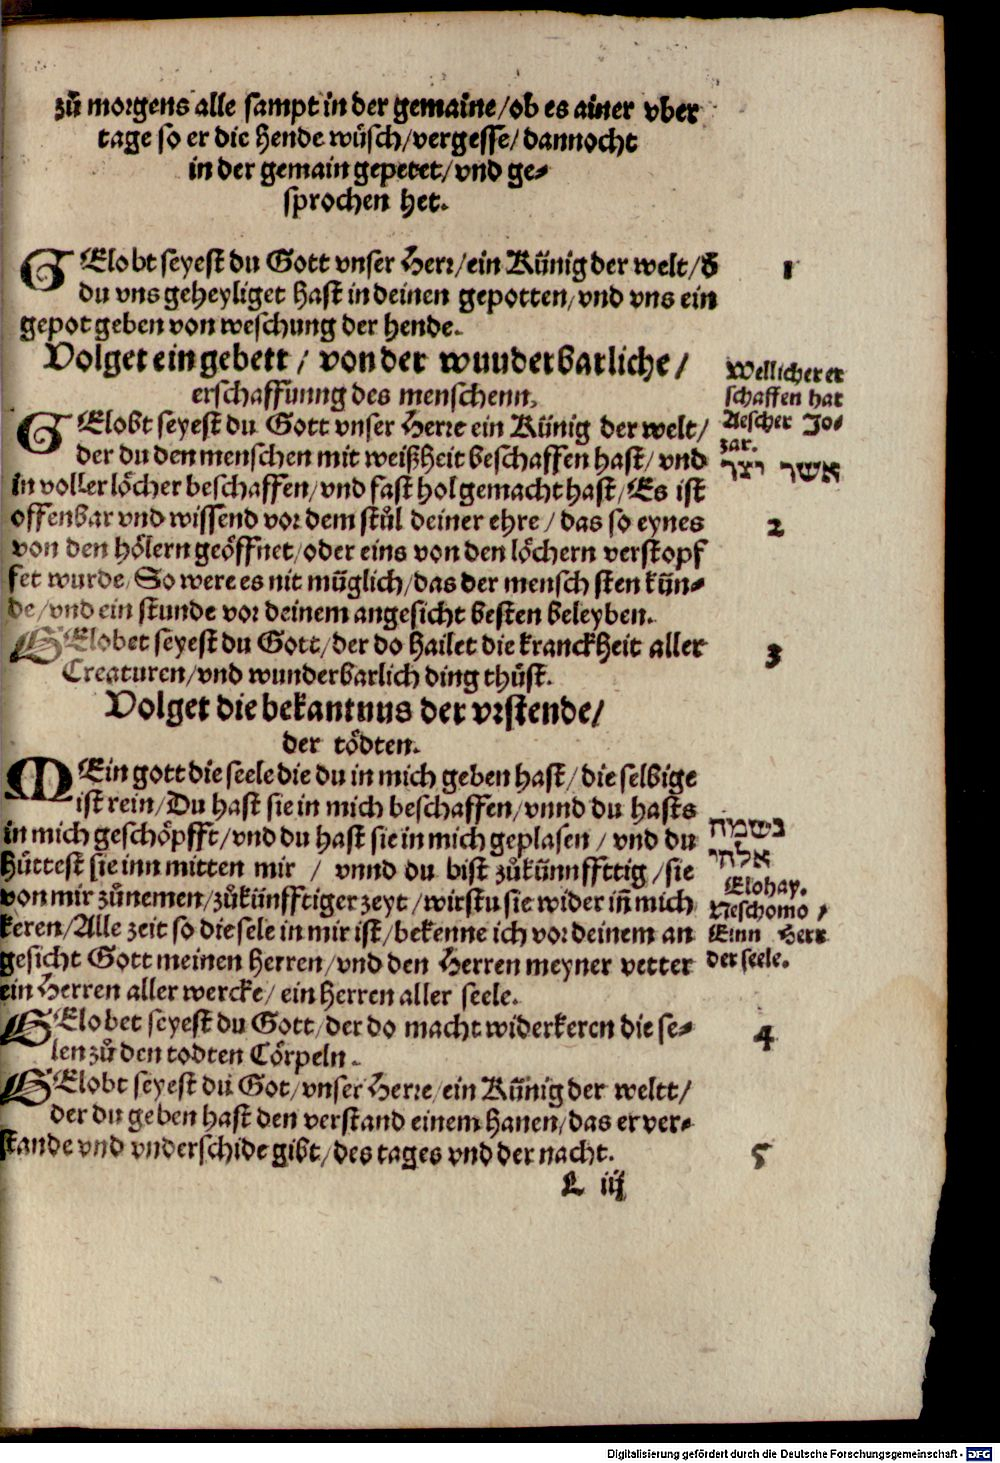 zů morgens alle sampt in der gemaine/ob es ainer vber
tage so er die hende wůsch/vergesse/dannocht
in der gemain gepetet/vnd ge-
sprochen het.
GElobt seyest du Gott vnser Herr/ein Künig der welt/d
du vns geheyliget hast in deinen gepotten/vnd vns ein
gepot geben von weschung der hende.
1
Volget ein gebett / von der wunderbarliche/
erschaffunng des menschenn.
GElobt seyest du Gott vnser Herre ein Künig der welt/
der du den menschen mit weißheit beschaffen hast/vnd
in voller löcher beschaffen/vnd fast hol gemacht hast/Es ist
offenbar vnd wissend vor dem stůl deiner ehre/das so eynes
von den hölern geöffnet/oder eins von den löchern verstopf
fet wurde/So were es nit müglich/das der mensch sten kün-
de/vnd ein stunde vor deinem angesicht besten beleyben.
Wellicher er
schaffen hat
Aescher Jo-
zar.
אשר יצר
2
GElobet seyest du Gott/der do hailet die kranckheit aller
Creaturen/vnd wunderbarlich ding thůst.
3
Volget die bekantnus der vrstende/
der tödten.
MEin gott die seele die du in mich geben hast/die selbige
ist rein/Du hast sie in mich beschaffen/vnnd du hasts
in mich geschöpfft/vnd du hast sie in mich geplasen / vnd du
hüttest sie inn mitten mir / vnnd du bist zůkünnfttig/sie
von mir zůnemen/zůkünfftiger zeyt/wirstu sie wider iñ mich
keren/Alle zeit so die sele in mir ist/bekenne ich vor deinem an
gesicht Gott meinen herren/vnd den Herren meyner vetter
ein Herren aller wercke/ein herren aller seele.
נשמה
אלהי
Elohay.
Neschomo /
Einn Herr
der seele.
GElobet seyest du Gott/der do macht widerkeren die se-
len zů den todten Cörpeln.
4
GElobt seyest du Got/vnser Herre/ein Künig der weltt/
der du geben hast den verstand einem hanen/das er ver-
stande vnd vnderschide gibt/des tages vnd der nacht.
5
L iij
Digitalisierung gefördert durch die Deutsche Forschungsgemeinschaft - DFG